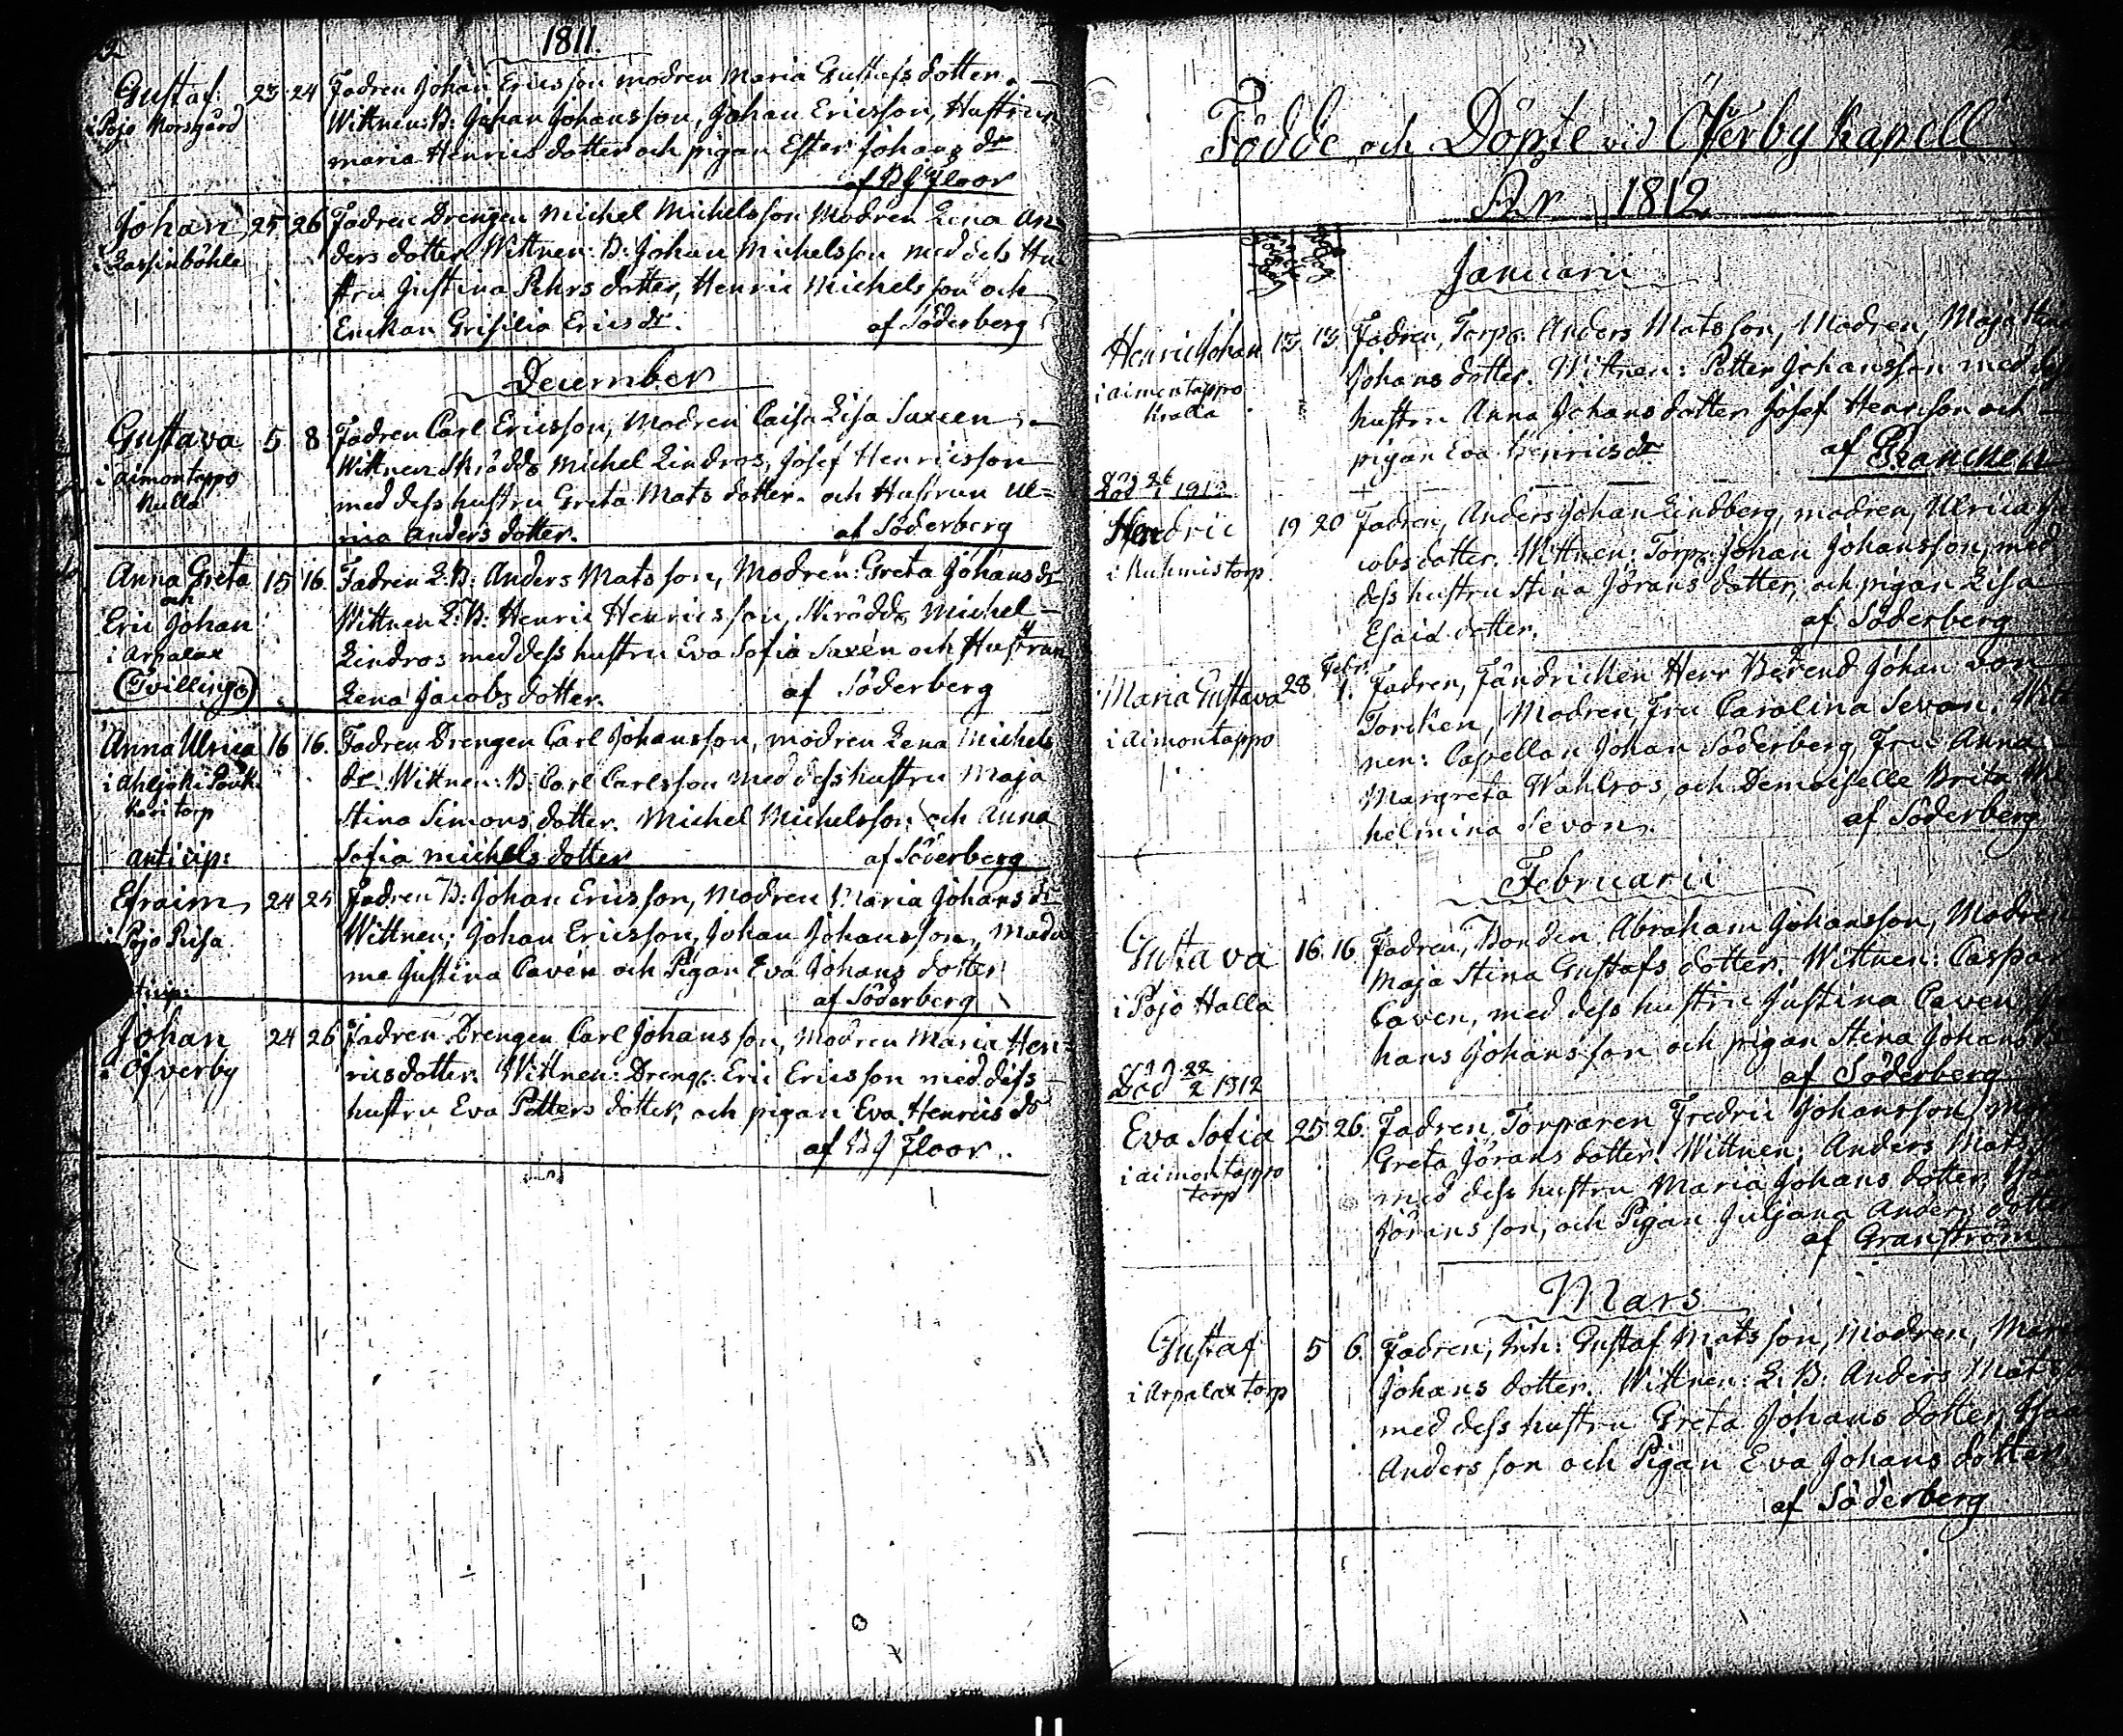 1811.
Gustaf. 23 24 Fadren Johan Ericsson modren Maria Gustafs dotter.
i Pojo Norrgård Wittnen: B: Johan Johansson, Johan Ericsson, Hustrun
maria Henrics dotter och pigan Ester Johans dr
af BG Floor
Johan 25 26 Fadren Drengen Michel Michelsson Modren Lena An
i Lassinböhle ders dotter Wittnen: B: Johan Michelsson med dess Hu
stru Justina Pehrs dotter, Henric Michelsson och
Enckan Grisilia Erics dr. af Söderberg
December
Gustava 5 8 Fadren Carl Ericsson, Modren Caisa Lisa Saxen
i aimontappo Wittnen Skrädd. Michel Lindros, Josef Henricsson
Kulla med dess hustru Greta Mats dotter. och Hustrun Ul=
rica Anders dotter. af Söderberg
Anna Greta 15 16. Fadren L: B: Anders Matsson, Modren: Greta Johans dr
och
Eric Johan Wittnen L: B: Henric Henricsson, Skrädd. Michel
i Arpalax Lindros med dess hustru Eva Sofia Saxén och Hustrun
(Tvillingr) Lena Jacobs dotter. af Söderberg
Anna Ulrica 16 16. Fadren Drengen Carl Johansson, modren Lena Michels
dr. Wittnen: B: Carl Carlsson med dess hustru Maja
kari torp Stina Simons dotter. Michel Michelsson och Anna
anticip: Sofia michels dotter af Söderberg
Efraim 24 25 Fadren B: Johan Ericsson, Modren Maria Johans dr
i Pojo Risa Wittnen; Johan Ericsson, Johan Johansson, Mada
me Justina Cavén och Pigan Eva Johans dotter
af Söderberg
Johan 24 26 Fadren Drengen Carl Johansson, Modren Maria Hen=
i Öfverby ricsdotter. Wittnen: Dreng: Eric Ericsson med dess
hustru Eva Petters dotter, och pigan Eva Henrics dr
af BG Floor.
Födde och Döpte vid Öfverby kapell
År 1812
Januarii
Henric Johan 13 13 Fadren, Torp. Anders Matsson, Modren, Maja
i aimontappo Johans dotter. Wittnen: Petter Johansson med
Kralla hustru Anna Johans dotter Josef Henricson och
pigan Eva Henrics dr af Brancken
Död 26/1 1812
Hendric 19 20 Fadren, Anders Johan Lindberg, modren, Ulrica
i Ruhmis torp cobs dotter. Wittnen: Torp. Johan Johansson, med
dess hustru Stina Jörans dotter, och pigan Lisa
Esaia dotter. af Söderberg
Febr.
Maria Gustava 28. 1. Fadren, Fändricken Herr Berend Johan von
i aimontappo Torcken, Modren, Fru Carolina Sevon. Witt
nen: Capellan Johan Söderberg Fru Anna
Margreta Wahlros, och Demoiselle Brita Wil
helmina Sevon. af Söderberg
Februarii
Gustava 16. 16 Fadren, Bonden Abraham Johansson, Modren
Maja Stina Gustafs dotter. Wittnen: Caspar
i Pojo Halla Caven, med dess hustru Justina Caven,
hans Johansson och pigan Stina Johans
af Söderberg
Död 22/2 1812
Eva Sofia 25 26. Fadren Torparen Fredric Johansson,
i aimontappo Greta Jörans dotter. Wittnen: Anders Mats
torp med dess hustru Maria Johans dotter,
Jöransson, och Pigan Juljana Anders dotter
af Granström
Mars
Gustaf 5 6. Fadren, Inh: Gustaf Matsson, Modren, Mar
i Arpalax torp Johans dotter. Wittnen: L: B: Anders Mats
med dess hustru Greta Johans dotter,
Andersson och Pigan Eva Johans dotter
af Söderberg
11